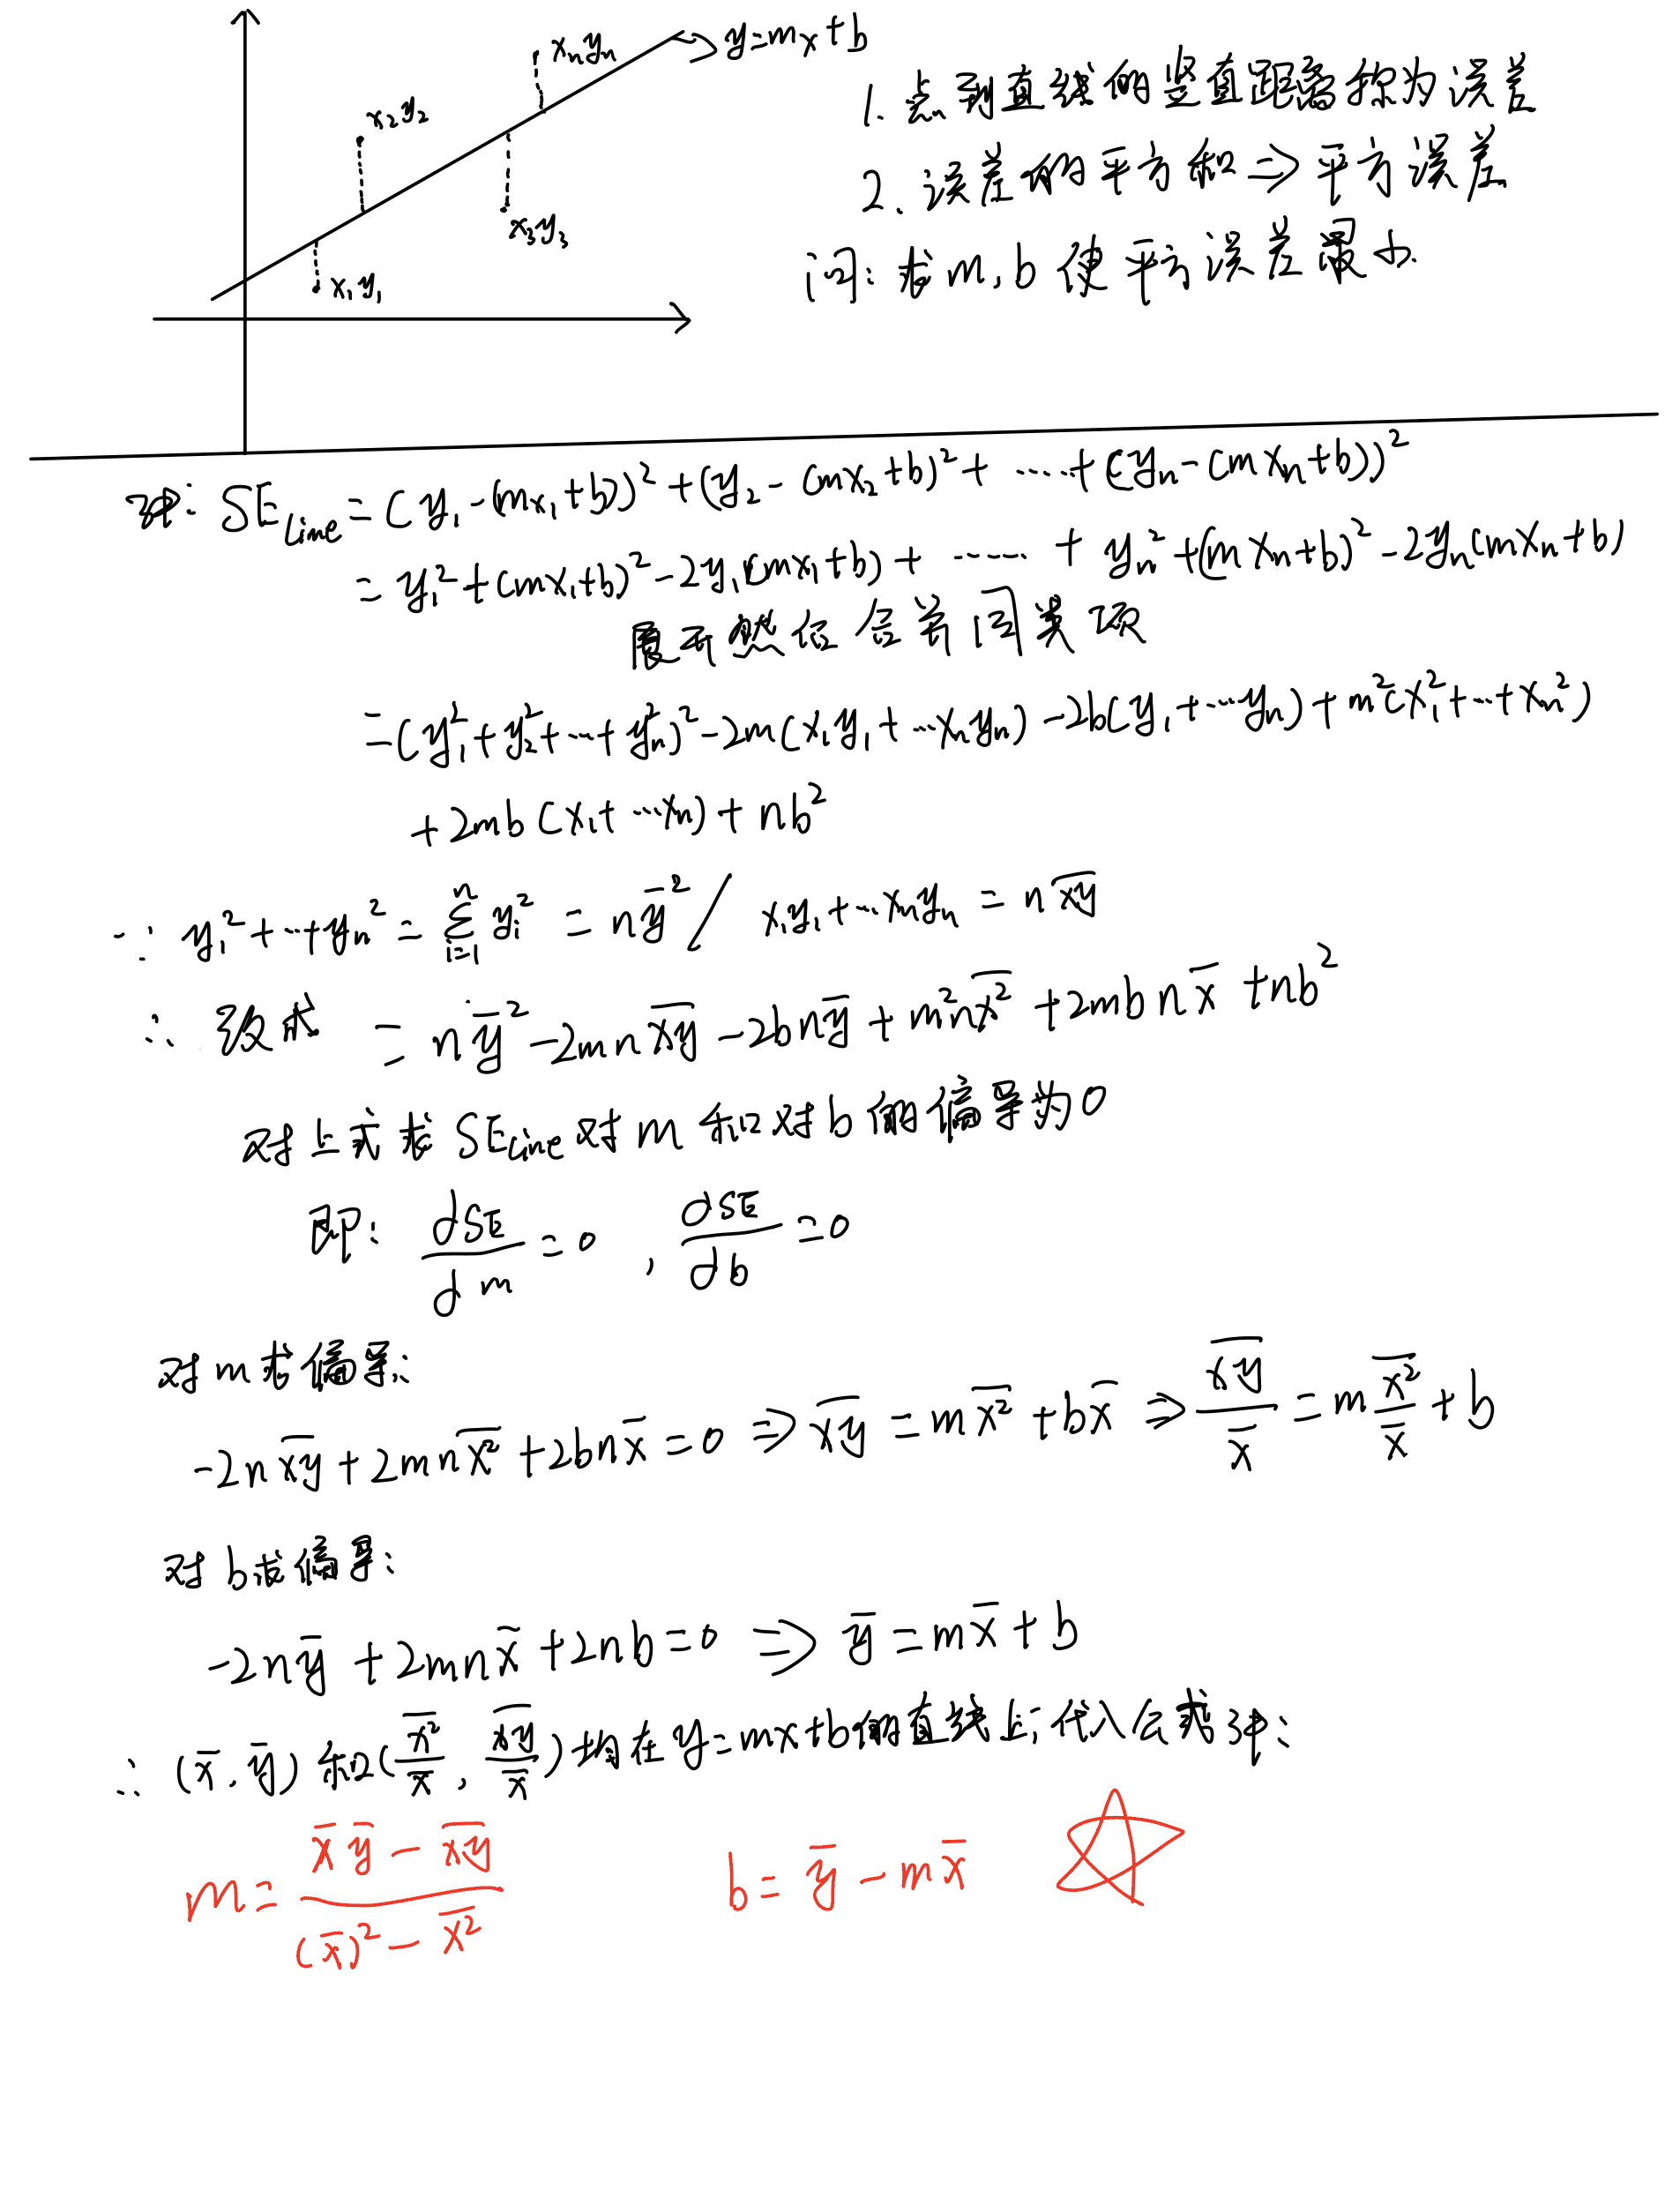 y=mx+b
xₙyₙ
x₂y₂
x₃y₃
x₁y₁
1. 点到直线的竖直距离称为误差
2. 误差的平方和⇒平方误差
问: 求m,b使平方误差最小.
SE_Line = (y₁-(mx₁+b))² + (y₂-(mx₂+b)² + ⋯ + (yₙ-(mxₙ+b))²
= y₁²+(mx₁+b)²-2y₁(mx₁+b)+ ⋯⋯ + yₙ²+(mxₙ+b)²-2yₙ(mxₙ+b)
展开然后合并同类项
=(y₁²+y₂²+⋯+yₙ²)²-2m(x₁y₁+⋯xₙyₙ)-2b(y₁+⋯yₙ)+m²(x₁²+⋯+xₙ²)
+2mb(x₁+⋯xₙ)+nb²
∵ y₁²+⋯+yₙ² = \sum_{i=1}^{n} yᵢ² = n\overline{y}² / x₁y₁+⋯xₙyₙ = n\overline{xy}
∴ 改成 = n\overline{y}²-2mn\overline{xy}-2bn\overline{y}+m²n\overline{x²}+2mbn\overline{x}+nb²
对上式求SE_Line对m和对b的偏导为0
即: \frac{dSE}{dm}=0 , \frac{dSE}{db}=0
对m求偏导:
-2n\overline{xy}+2mn\overline{x²}+2bn\overline{x}=0 ⇒ \overline{xy}=m\overline{x²}+b\overline{x} ⇒ \frac{\overline{xy}}{\overline{x}}=m\frac{\overline{x²}}{\overline{x}}+b
对b求偏导:
-2n\overline{y}+2mn\overline{x}+2nb=0 ⇒ \overline{y}=m\overline{x}+b
∴ (\overline{x},\overline{y})和(\frac{\overline{x²}}{\overline{x}},\frac{\overline{xy}}{\overline{x}})均在y=mx+b的直线上;代入公式
m=\frac{\overline{x}\overline{y}-\overline{xy}}{(\overline{x})²-\overline{x²}} b=\overline{y}-m\overline{x}